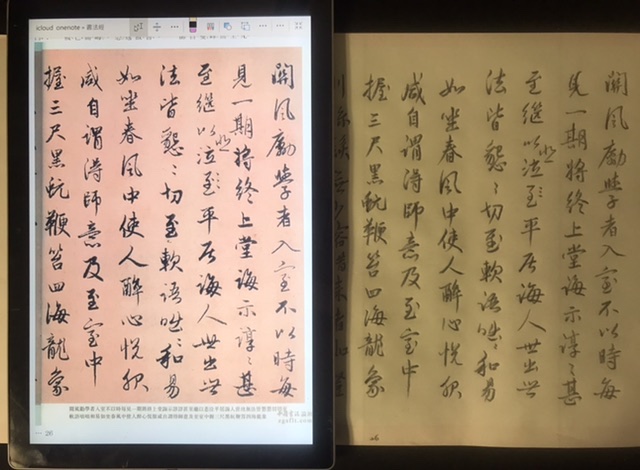 icloud onenote • 書法組
關風勵學者入室不以時每
見一期將終上堂誨示諄〻甚
至繼以悲泣至平居誨人世出世
法皆懇〻切至軟語咄〻和易
如坐春風中使人醉心悅服
咸自謂得師意及至室中
握三尺黑蚖鞭笞四海龍象
26
關風勵學者入室不以時每
見一期將終上堂誨示諄〻甚
至繼以悲泣至平居誨人世出世
法皆懇〻切至軟語咄〻和易
如坐春風中使人醉心悅服
咸自謂得師意及至室中
握三尺黑蚖鞭笞四海龍象
26